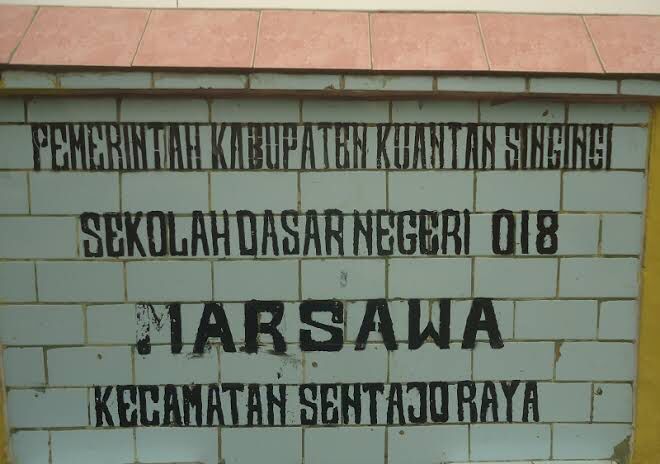 PEMERINTAH KABUPATEN KUANTAN SINGINGI
SEKOLAH DASAR NEGERI 018
MARSAWA
KECAMATAN SENTAJO RAYA